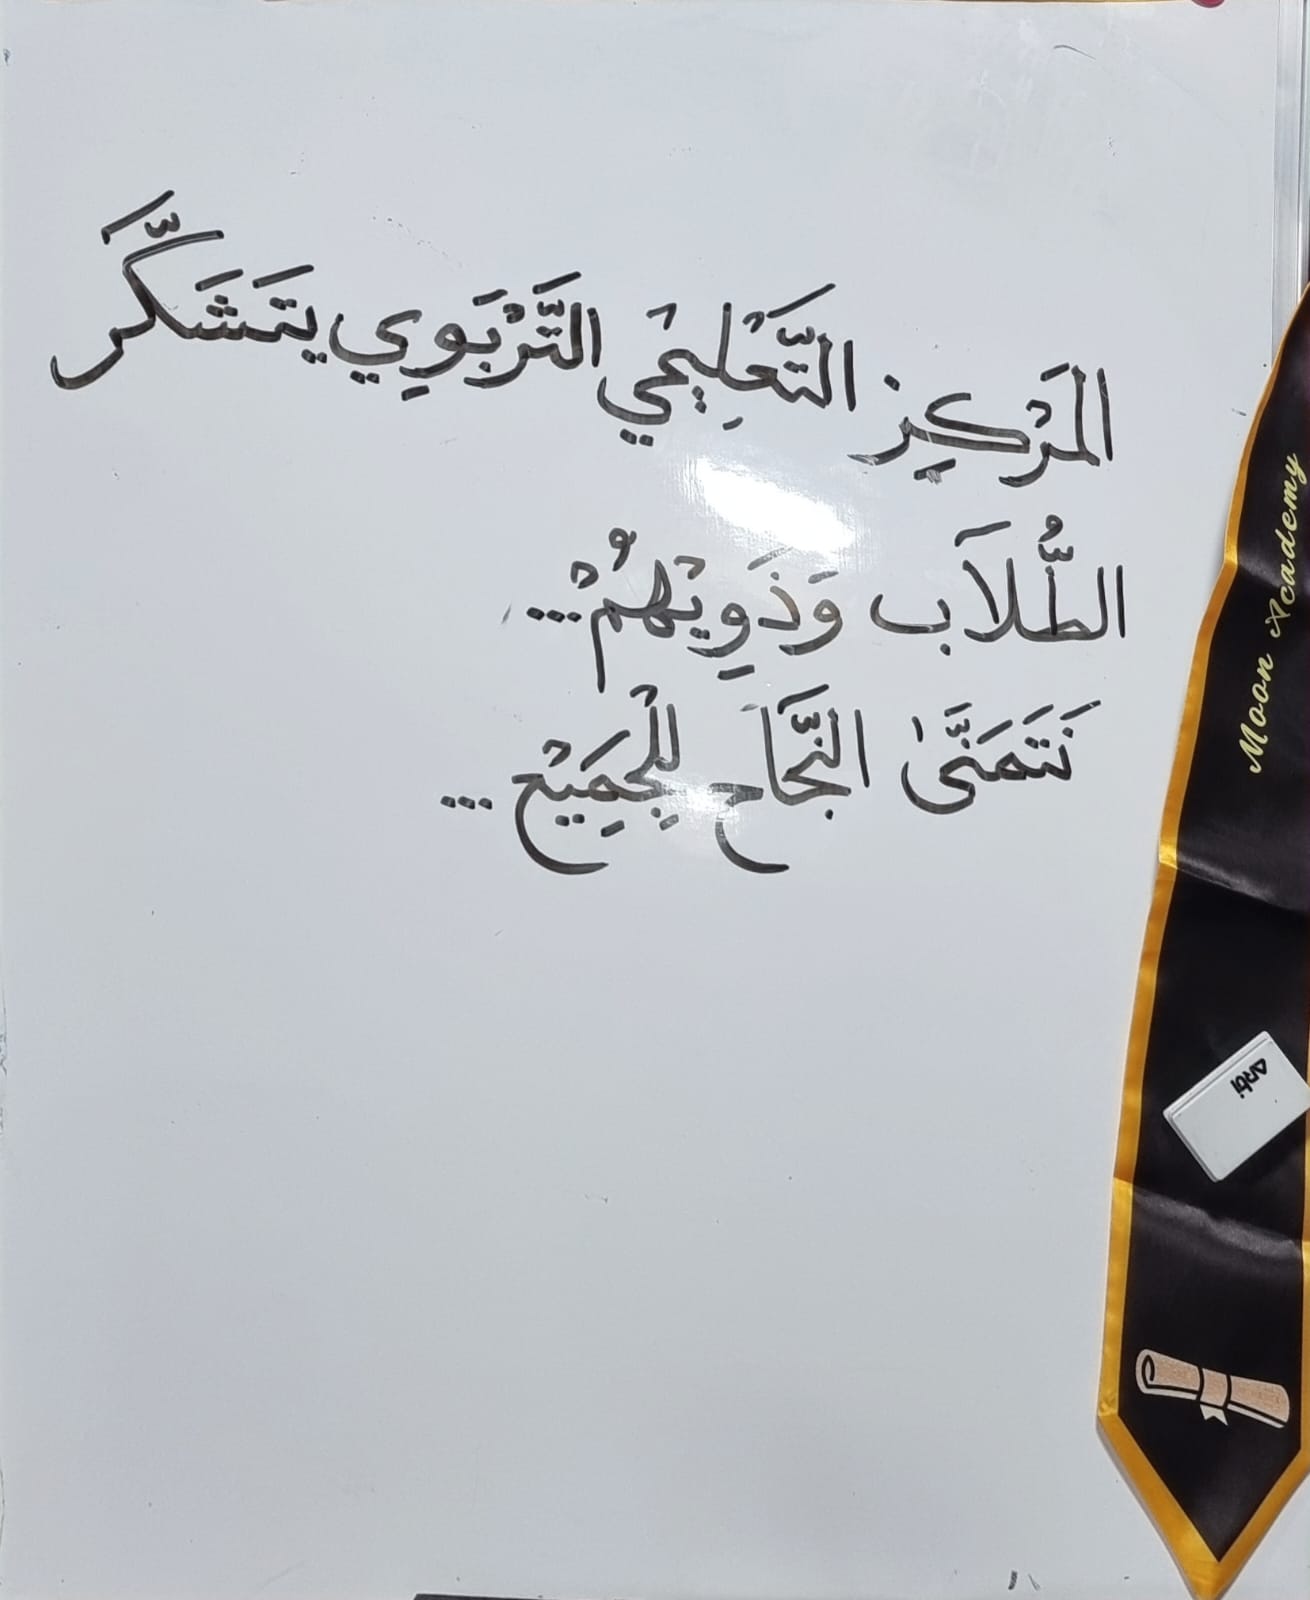 المَرْكِز التَّعْلِيمْي التَّرْبَوِي يَتَشَكَّر
الطُّلاَب وَذَوِيْهُمْ...
نَتَمَنَّىٰ النَّجَاح لِلْجَمِيْع...
Moon Academy
arti